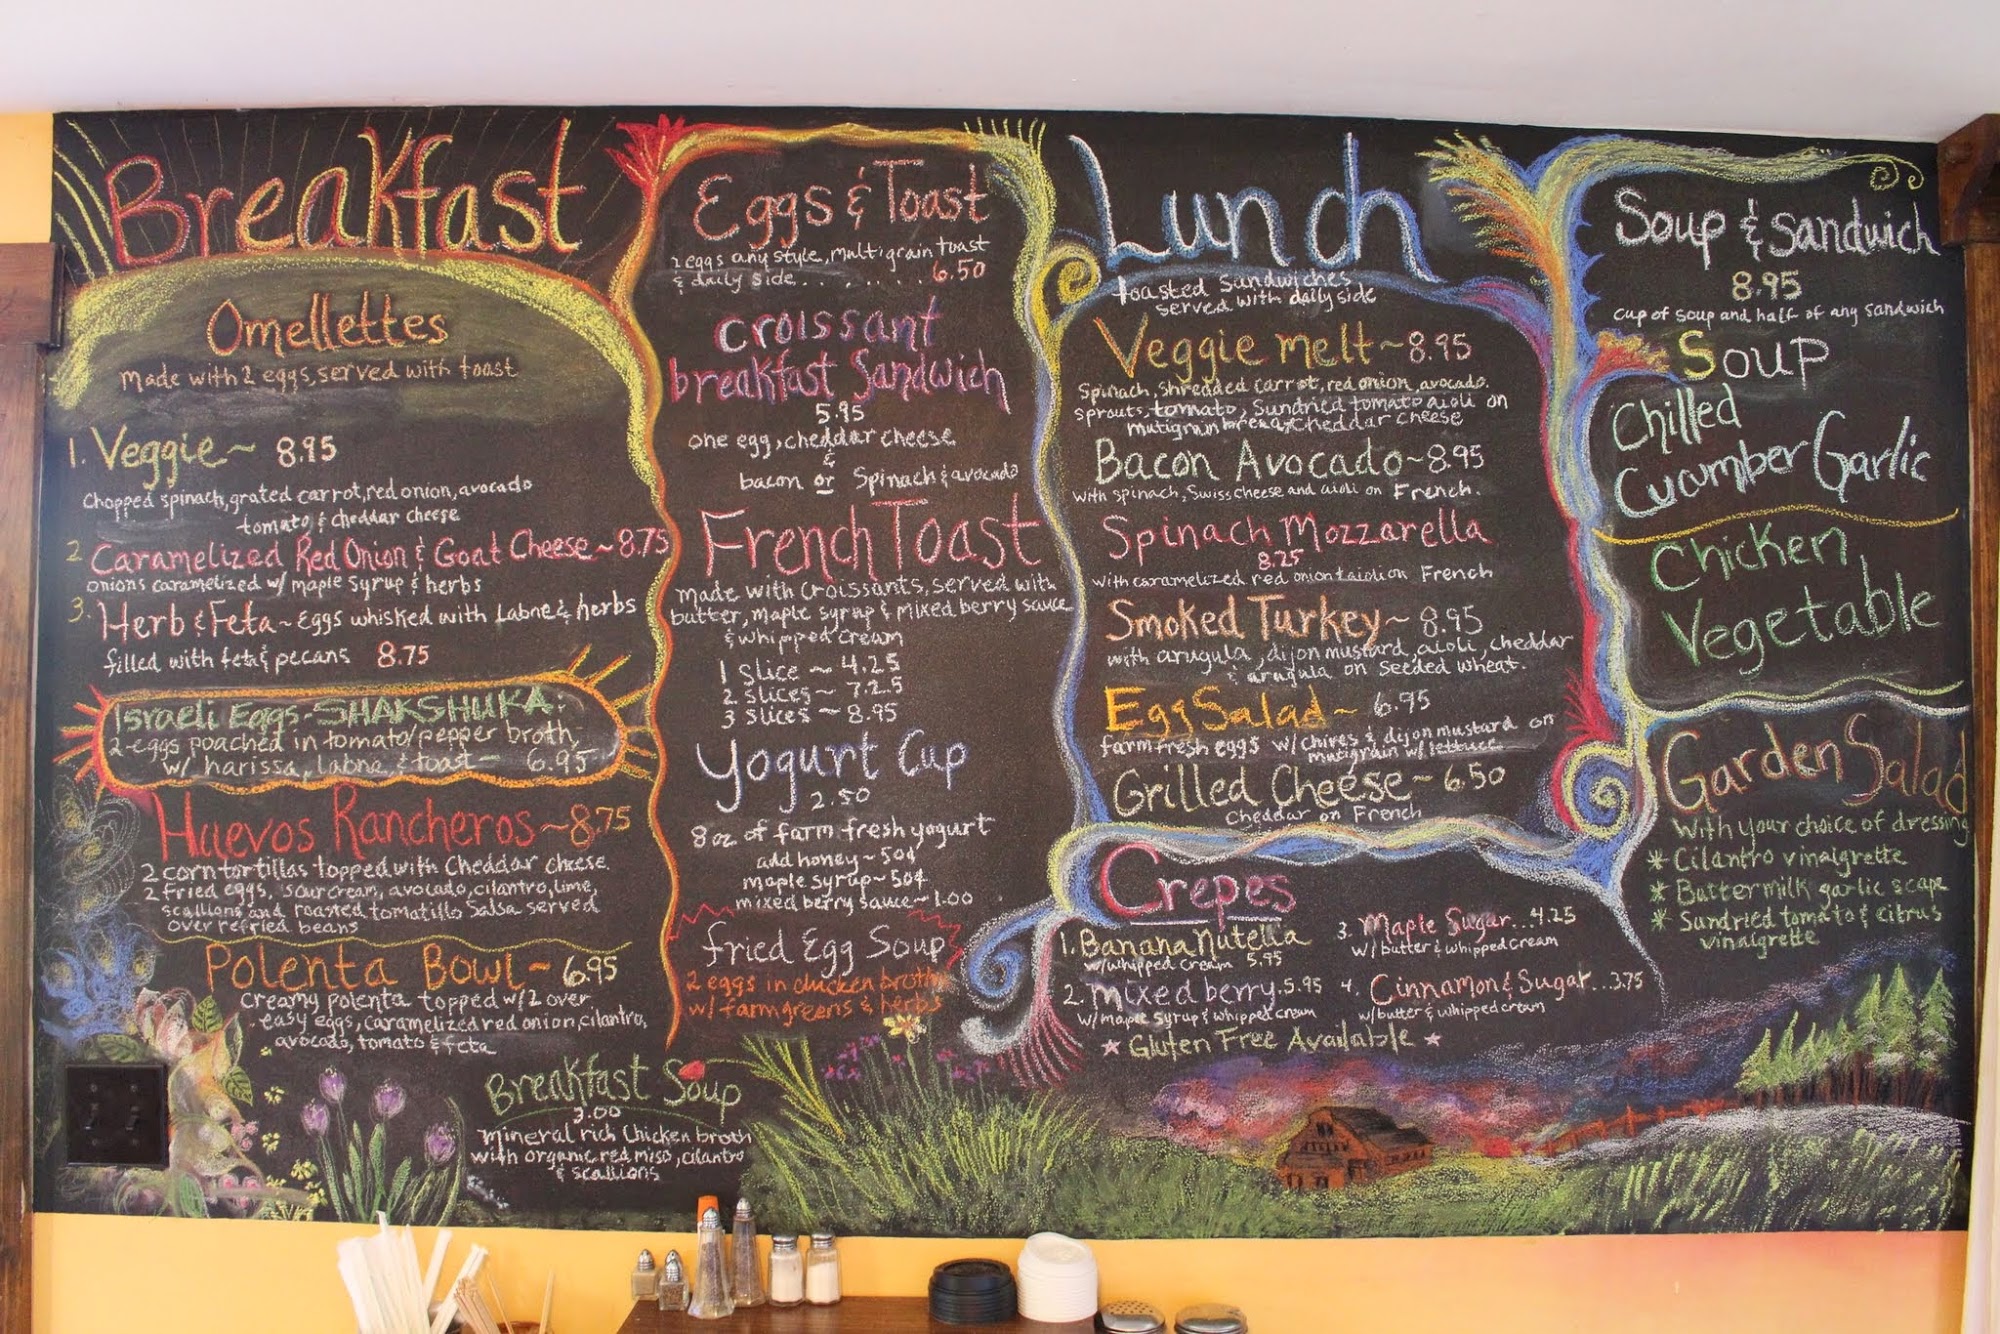 Breakfast
Omellettes
made with 2 eggs, served with toast
1. Veggie ~ 8.95
Chopped spinach, grated carrot, red onion, avocado
tomato, & cheddar cheese
2. Caramelized Red Onion & Goat Cheese ~ 8.75
onions caramelized w/ maple syrup & herbs
3. Herb & Feta ~ Eggs whisked with Labne & herbs
filled with feta & pecans 8.75
Israeli Eggs - SHAKSHUKA:
2-eggs poached in tomato/pepper broth,
w/ harissa, labne, & toast — 6.95
Huevos Rancheros ~ 8.75
2 corn tortillas topped with Cheddar cheese.
2 fried eggs, sour cream, avocado, cilantro, lime,
scallions and roasted tomatillo salsa served
over refried beans
Polenta Bowl ~ 6.95
Creamy polenta topped w/ 2 over
easy eggs, caramelized red onion, cilantro,
avocado, tomato & feta
Breakfast Soup
3.00
mineral rich Chicken broth
with organic red miso, cilantro
& scallions
Eggs & Toast
2 eggs any style, multigrain toast
& daily side . . . . . . . . 6.50
Croissant
breakfast Sandwich
5.95
one egg, cheddar cheese
&
bacon or Spinach & avocado
French Toast
made with croissants, served with
butter, maple syrup & mixed berry sauce
& whipped cream
1 slice ~ 4.25
2 slices ~ 7.25
3 slices ~ 8.95
Yogurt Cup
2.50
8 oz of farm fresh yogurt
add honey ~ 50¢
maple syrup ~ 50¢
mixed berry sauce ~ 1.00
fried Egg Soup
2 eggs in chicken broth
w/ farm greens & herbs
Lunch
toasted Sandwiches
served with daily side
Veggie melt ~ 8.95
Spinach, shredded carrot, red onion, avocado.
sprouts, tomato, Sundried tomato aioli on
mutigrain bread, cheddar cheese
Bacon Avocado ~ 8.95
with spinach, Swiss cheese and aioli on French.
Spinach Mozzarella
8.25
with caramelized red onion & aioli on French
Smoked Turkey ~ 8.95
with arugula, dijon mustard, aioli, cheddar
& arugula on Seeded wheat.
Egg Salad ~ 6.95
farm fresh eggs w/ chives & dijon mustard on
mutigrain w/ lettuce
Grilled Cheese ~ 6.50
Cheddar on French
Crepes
1. Banana Nutella
w/ whipped cream 5.95
2. mixed berry. 5.95
w/ maple syrup & whipped cream
3. Maple Sugar...4.25
w/ butter & whipped cream
4. Cinnamon & Sugar...3.75
w/ butter & whipped cream
* Gluten Free Available *
Soup & Sandwich
8.95
cup of soup and half of any sandwich
Soup
Chilled
Cucumber Garlic
Chicken
Vegetable
Garden Salad
With your choice of dressing
* Cilantro vinaigrette
* Buttermilk garlic scape
* Sundried tomato & citrus
vinaigrette